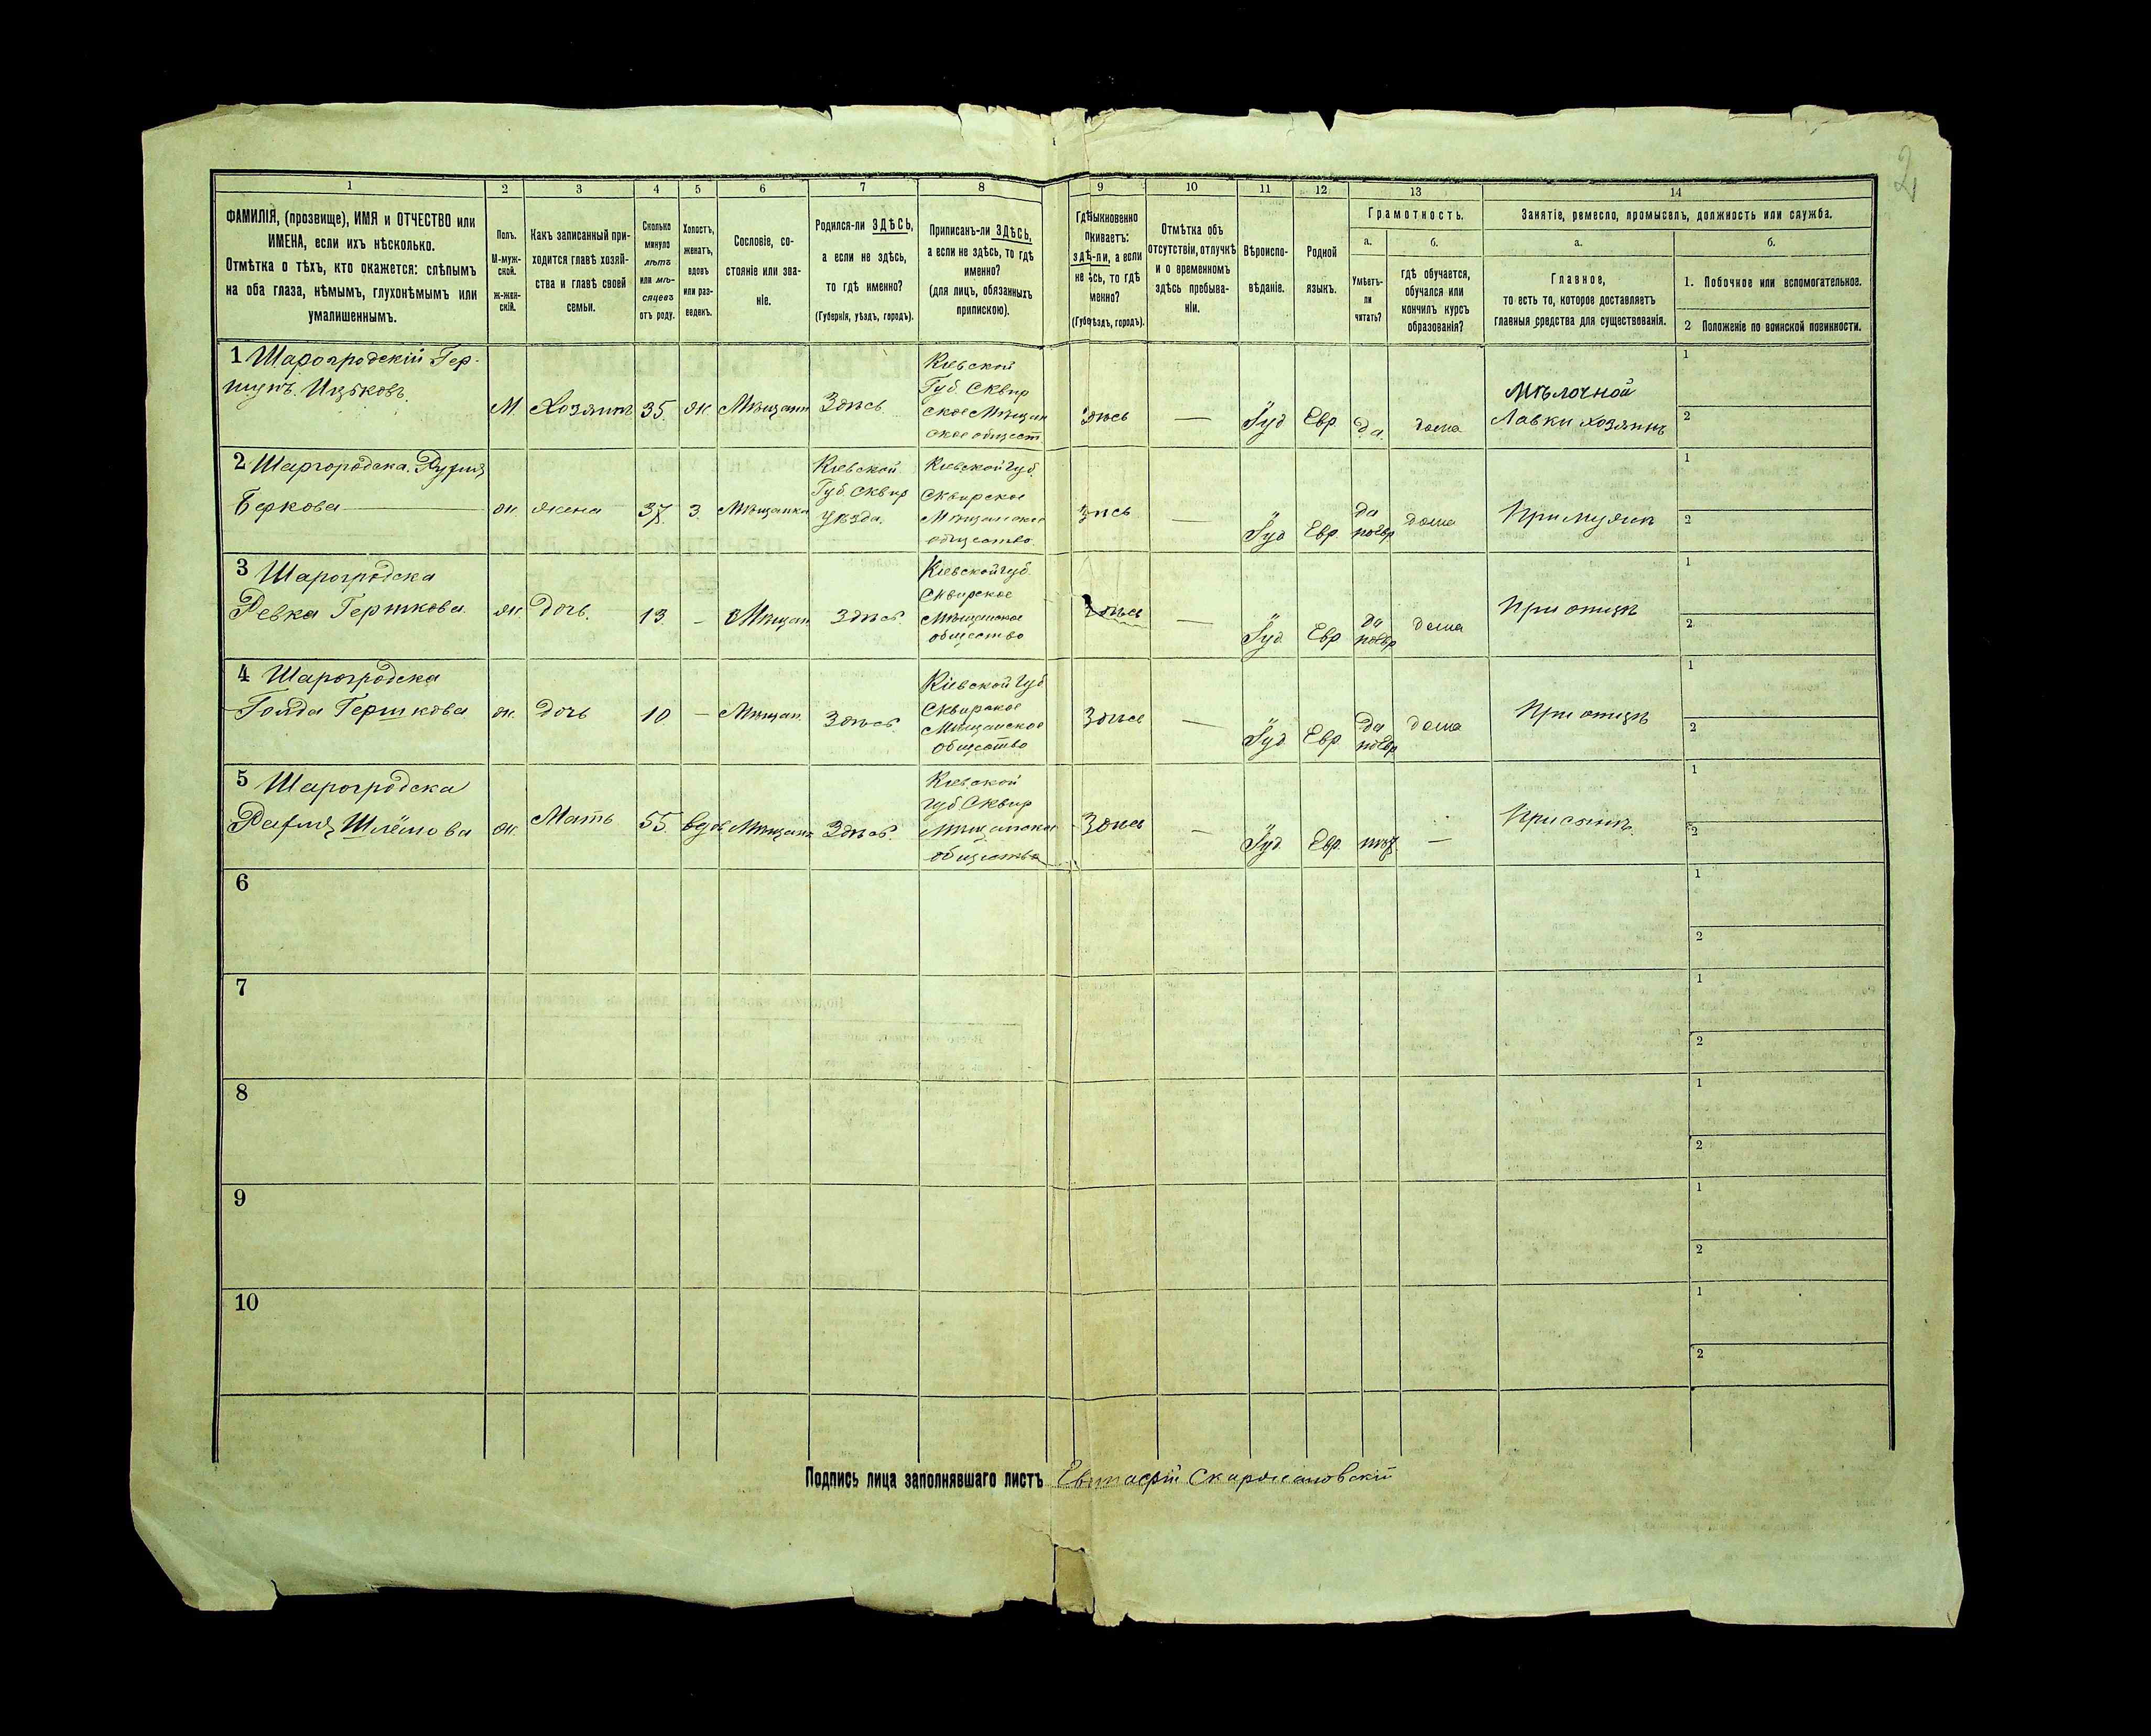 2
1 2 3 4 5 6 7 8 9 10 11 12 13 14
ФАМИЛІЯ, (прозвище), ИМЯ и ОТЧЕСТВО или
ИМЕНА, если ихъ нѣсколько.
Отмѣтка о тѣхъ, кто окажется: слѣпымъ
на оба глаза, нѣмымъ, глухонѣмымъ или
умалишеннымъ.
Полъ.
М-муж-
ской.
ж-жен-
скій.
Какъ записанный при-
ходится главѣ хозяй-
ства и главѣ своей
семьи.
Сколько
минуло
лѣтъ
или мѣ-
сяцевъ
отъ роду.
Холостъ,
женатъ,
вдовъ
или раз-
веденъ.
Сословіе, со-
стояніе или зва-
ніе.
Родился-ли ЗДѢСЬ,
а если не здѣсь,
то гдѣ именно?
(Губернія, уѣздъ, городъ).
Приписанъ-ли ЗДѢСЬ,
а если не здѣсь, то гдѣ
именно?
(для лицъ, обязанныхъ
припискою).
Гдѣ
ыкновенно
живаетъ:
здѣ
-ли, а если
не
сь, то гдѣ
менно?
(Губ
ѣздъ, городъ).
Отмѣтка объ
отсутствіи, отлучкѣ
и о временномъ
здѣсь пребыва-
ніи.
Вѣроиспо-
вѣданіе.
Родной
языкъ.
Грамотность.
а.
Умѣетъ-
ли
читать?
б.
гдѣ обучается,
обучался или
кончилъ курсъ
образованія?
Занятіе, ремесло, промыселъ, должность или служба.
а.
Главное,
то есть то, которое доставляетъ
главныя средства для существованія.
б.
1. Побочное или вспомогательное.
2 Положеніе по воинской повинности.
1 Шарогродскій Гер-
Ицьковъ.
М. Хозяинъ 35 ж. Мѣщанин Здѣсь
Кіевской
Губ. Сквир
ское Мѣщан
ское общест
здѣсь — Іуд Евр. да дома
Мѣлочной
Лавки хозяинъ
1
2
2 Шаргородска
Беркова
ж. жена 37 З. Мѣщанка
Кіевской
Губ. Сквир
уѣзда.
Кіевской губ
Сквирское
Мѣщанское
общество.
— Іуд Евр.
да
поЕвр
дома При мужѣ
1
2
3 Шарогродска
Ревка Гершкова
ж. дочь. 13. — Мѣщан Здѣсь.
Кіевской губ.
Сквирское
Мѣщанское
общество
Здѣсь — Іуд. Евр
да
поЕвр
дома При отцѣ
1
2
4 Шарогродска
Голда Гершкова
ж. дочь 10 — Мѣщан. Здѣсь.
Кіевской губ
Сквирское
Мѣщанское
общество
Здѣсь — Іуд. Евр.
да
поЕвр
дома При отцѣ
1
2
5 Шарогродска
Шлёмова
ж. Мать 55. вдов Мѣщанка Здѣсь.
Кіевской
губ. Сквир
Мѣщанское
общество
Здѣсь — Іуд. Евр. нѣт. —
При сынѣ.
1
2
6
1
2
7
1
2
8
1
2
9
1
2
10
1
2
Подпись лица заполнявшаго листъ